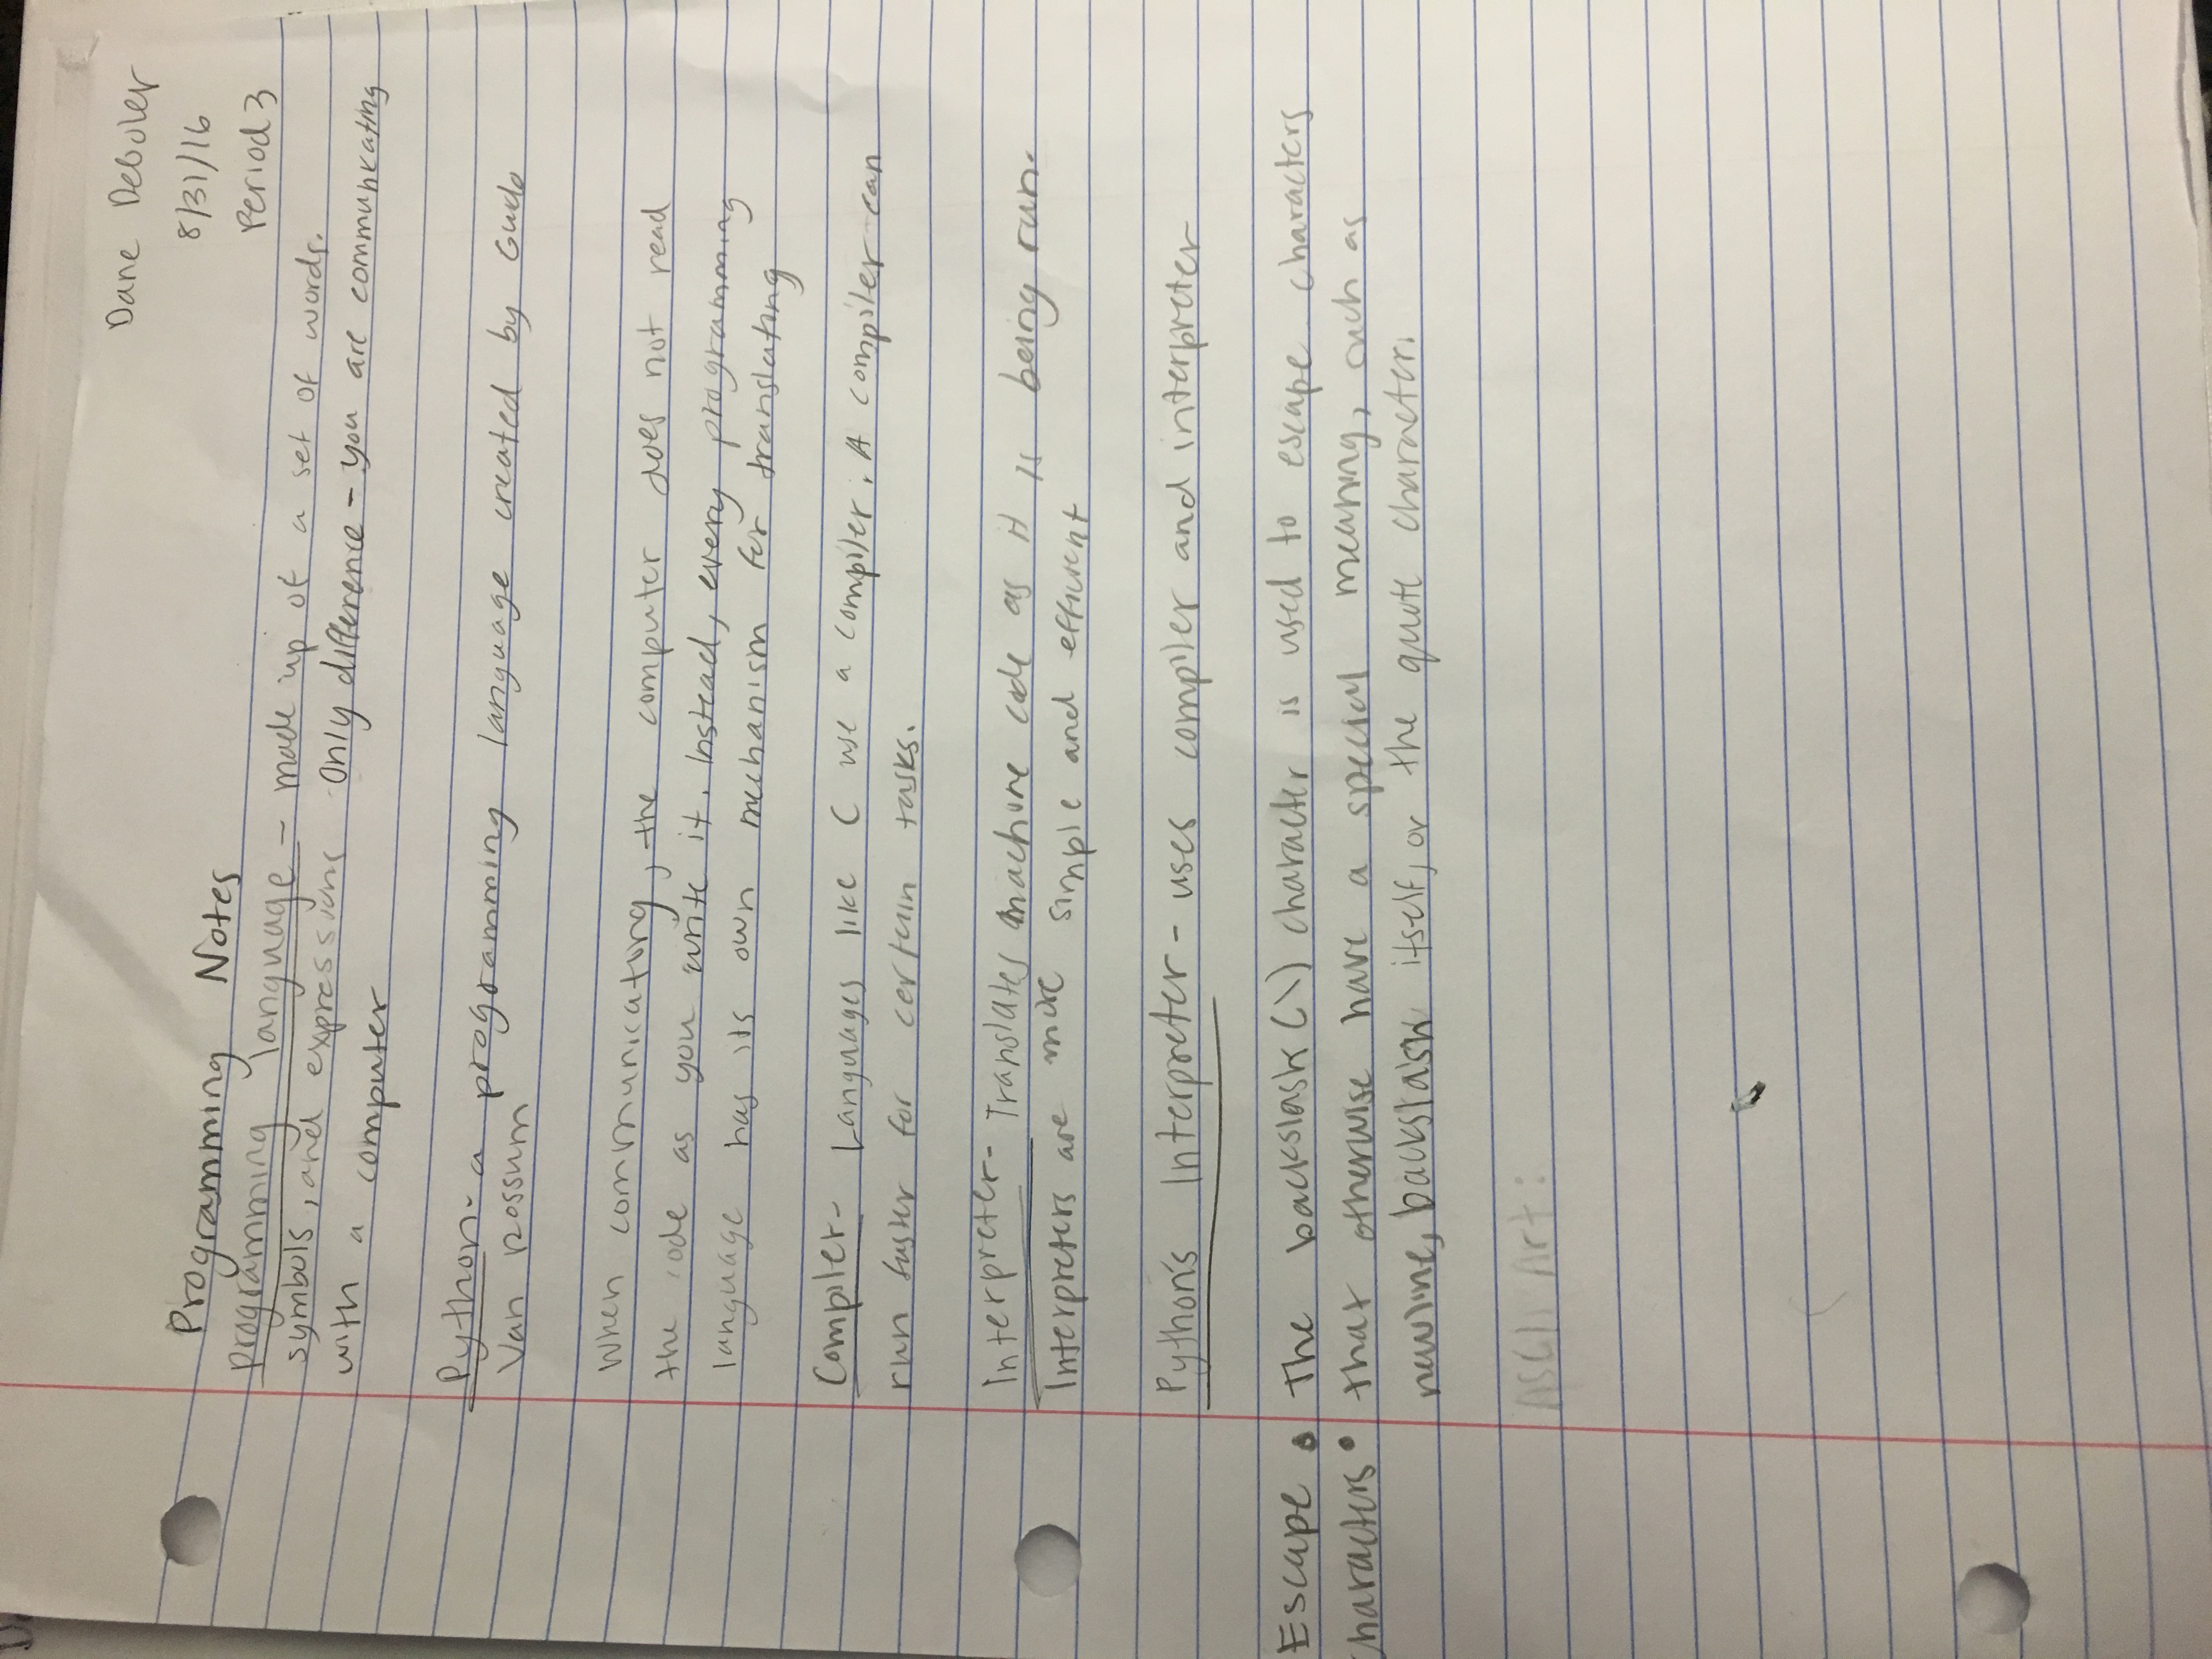 Dane Debuler
8/31/16
Period 3
Programming Notes
programming language - made up of a set of words.
symbols, and expressions Only difference - you are communicating
with a computer
Python - a programming language created by Guido
Van Rossum
When communicating, the computer does not read
the code as you write it. Instead, every programming
language has its own mechanism for translating
Compiler - Languages like C use a compiler. A compiler can
run faster for certain tasks.
Interpreter - Translates machine code as it is being run.
Interpreters are more simple and efficient
Python's Interpreter - uses compiler and interpreter
Escape : The backslash (\) character is used to escape characters
characters that otherwise have a special meaning, such as
newline, backslash itself, or the quote character.
ASCII Art: